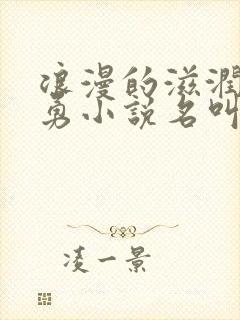 浪漫的滋润
勇小说名叫
凌一景